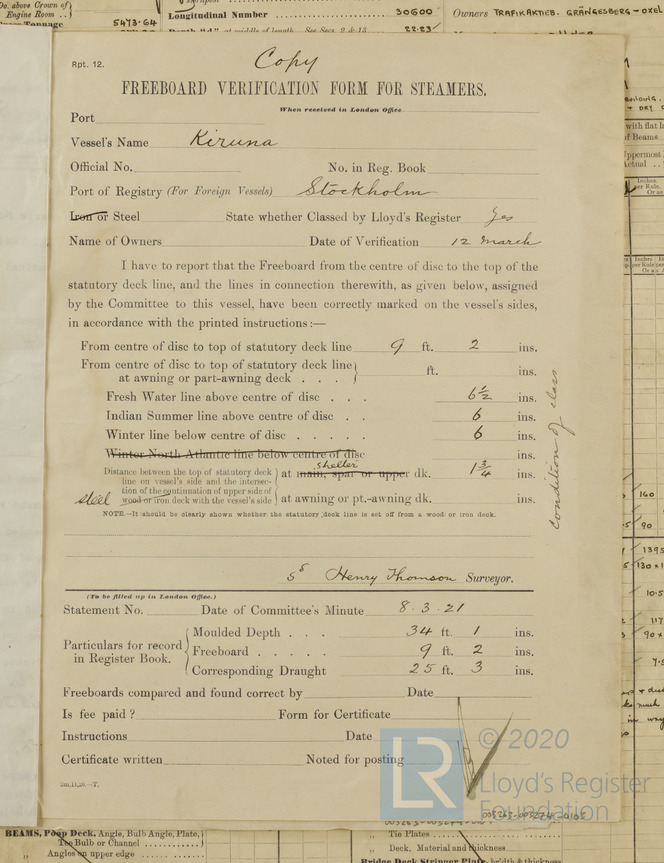 Do. above Crown of
Engine Room
Tonnage 5473.64
Longitudinal Number 30600
Owners TRAFIKAKTIEB. GRÄNGESBERG-OXEL
Depth "d" at middle of length. See Secs. 2 & 13 22.23
Copy
Rpt. 12.
FREEBOARD VERIFICATION FORM FOR STEAMERS.
When received in London Office
Port
Vessel's Name Kiruna
Official No. No. in Reg. Book
Port of Registry (For Foreign Vessels) Stockholm
Iron or Steel State whether Classed by Lloyd's Register Yes
Name of Owners Date of Verification 12 March
I have to report that the Freeboard from the centre of disc to the top of the
statutory deck line, and the lines in connection therewith, as given below, assigned
by the Committee to this vessel, have been correctly marked on the vessel's sides,
in accordance with the printed instructions:—
From centre of disc to top of statutory deck line 9 ft. 2 ins.
From centre of disc to top of statutory deck line
at awning or part-awning deck . . . ft. ins.
Fresh Water line above centre of disc . . 6½ ins.
Indian Summer line above centre of disc . . 6 ins.
Winter line below centre of disc . . . . . 6 ins.
Winter North Atlantic line below centre of disc ins.
shelter
Distance between the top of statutory deck
line on vessel's side and the intersec- at main, spar or upper dk. 1¾ ins.
tion of the continuation of upper side of
steel wood or iron deck with the vessel's side at awning or pt.-awning dk. ins.
condition of class
NOTE.—It should be clearly shown whether the statutory deck line is set off from a wood or iron deck.
Henry Thomson Surveyor.
(To be filled up in London Office.)
Statement No. Date of Committee's Minute 8.3.21
Particulars for record
in Register Book.
Moulded Depth . . . 34 ft. 1 ins.
Freeboard . . . . . 9 ft. 2 ins.
Corresponding Draught 25 ft. 3 ins.
Freeboards compared and found correct by Date
Is fee paid? Form for Certificate
Instructions Date
Certificate written Noted for posting
LR © 2020
Lloyd's Register
Foundation
BEAMS, Poop Deck, Angle, Bulb Angle, Plate,
Tee Bulb or Channel
„ Angles on upper edge
Tie Plates
„ Deck, Material and thickness
Bridge Deck Stringer Plate, br'dth & thickness